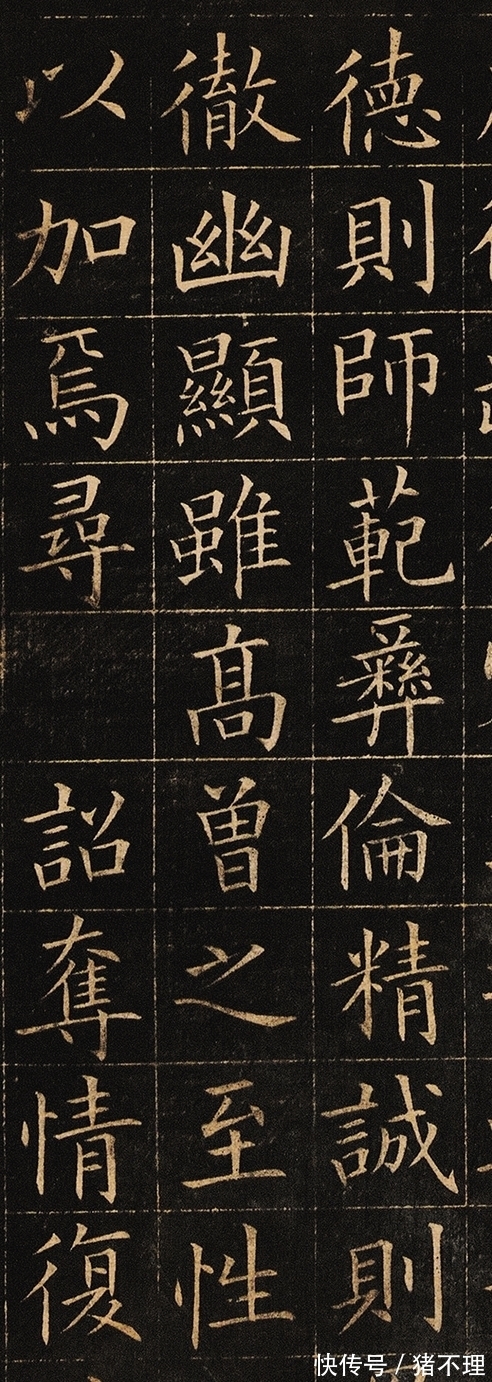 德則師範彝倫精誠則
徹幽顯雖高曾之至性
以加焉尋 詔奪情復
快传号 / 猪不理